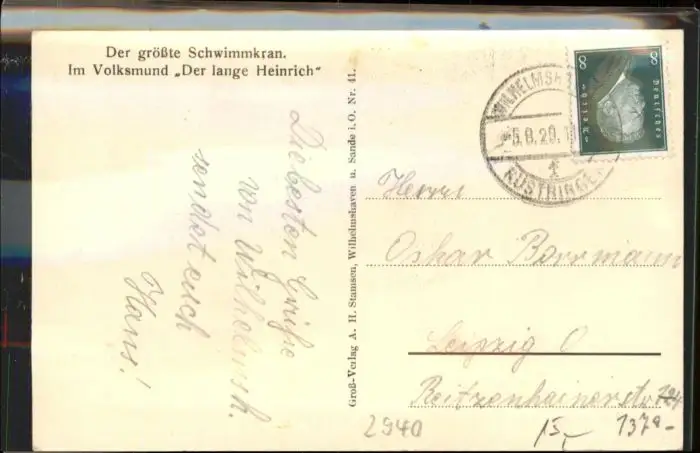 Der größte Schwimmkran.
Im Volksmund „Der lange Heinrich"
Die besten Grüße
von Wilhelmsh.
sendet euch
Hans!
Groß-Verlag A. H. Stamsen, Wilhelmshaven u. Sande i. O. Nr. 41.
8 8
Deutsches
Reich
WILHELMSH
-5.8.29.1
RÜSTRINGE
Herrn
Oskar Borrmann
Leipzig O
Reitzenhainerstr 124
2940
15,-
1379-